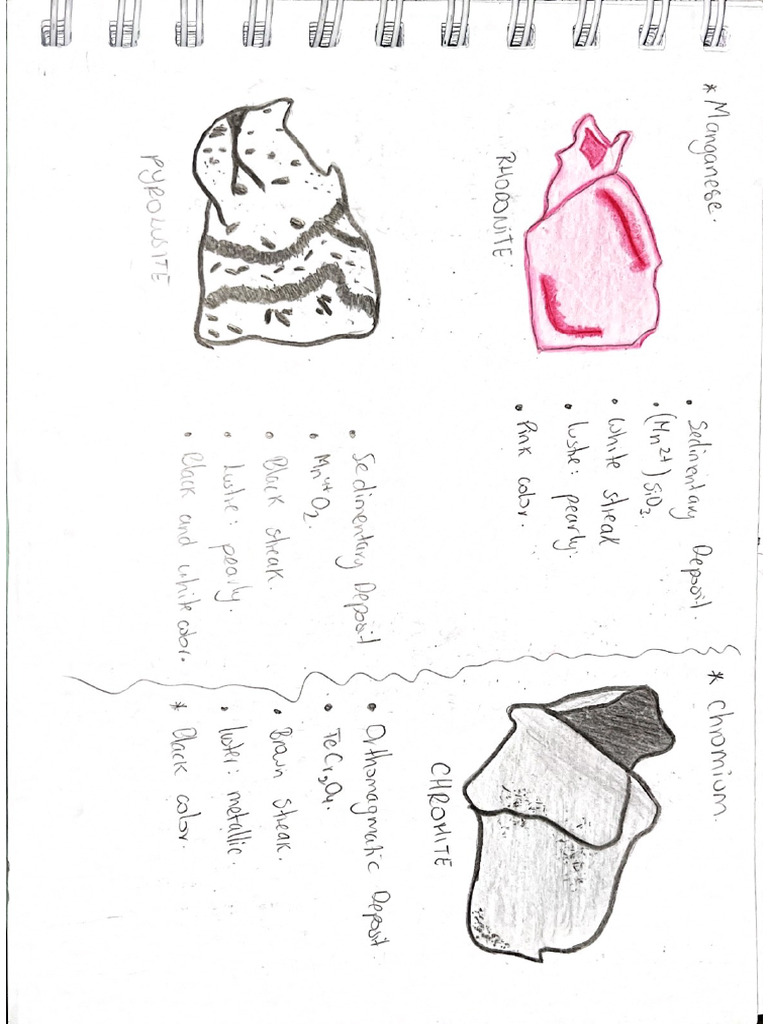 * Manganese.
RHODONITE
• Sedimentary Deposit.
• (Mn²⁺) SiO₃.
• White streak
• lustre: pearly.
• Pink color.
PYROLUSITE
• Sedimentary Deposit
• Mn⁴⁺O₂.
• Black streak.
• Lustre: pearly.
• Black and white color.
* Chromium.
CHROMITE
• Orthomagmatic Deposit.
• FeCr₂O₄.
• Brown streak.
• luster: metallic.
* Black color.